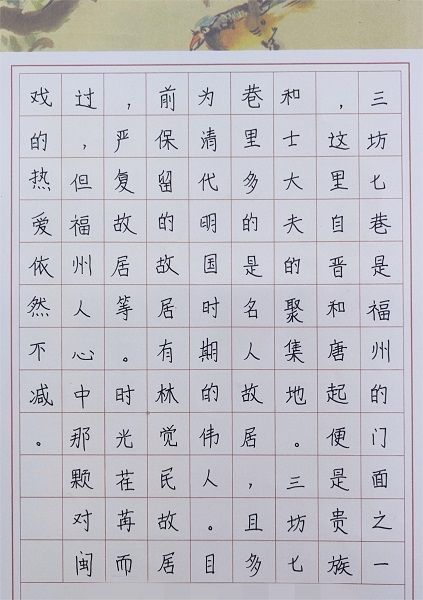 三坊七巷是福州的门面之一
，这里自晋和唐起便是贵族
和士大夫的聚集地。三坊七
巷里多的是名人故居，且多
为清代明国时期的伟人。目
前保留的故居有林觉民故居
，严复故居等。时光荏苒而
过，但福州人心中那颗对闽
戏的热爱依然不减。